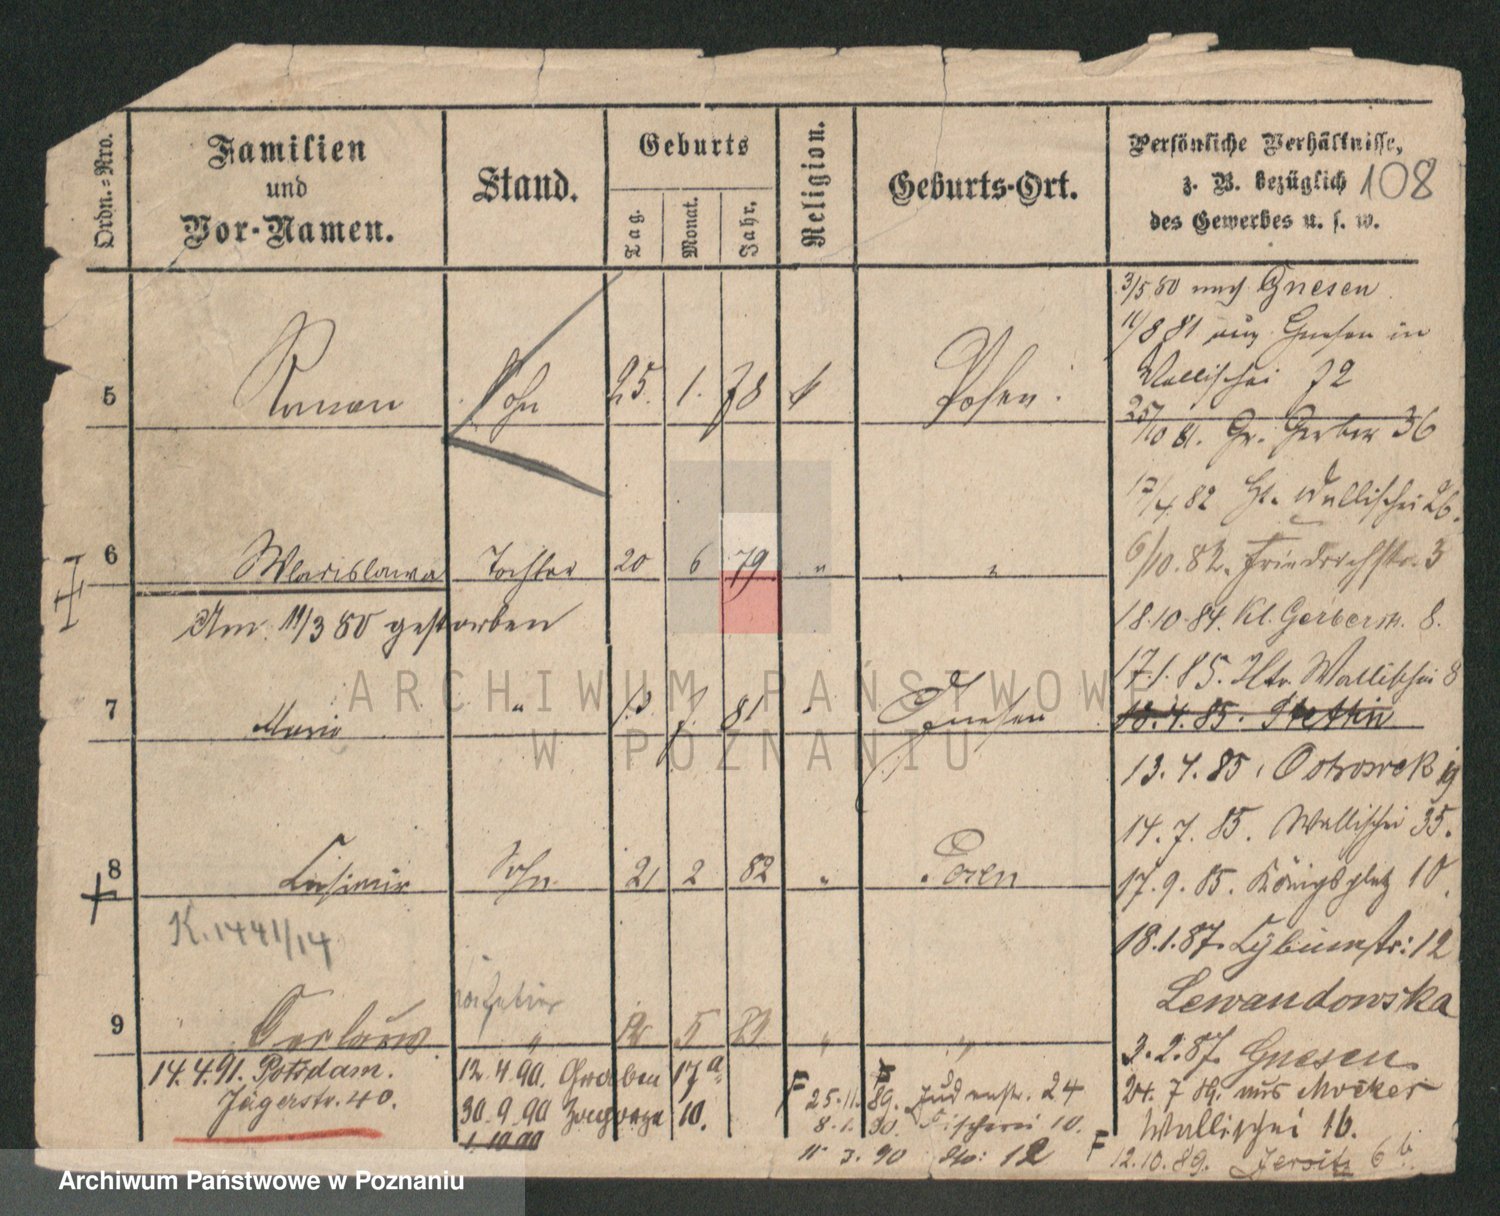 Ordn.=Nro.
Familien
und
Vor-Namen.
Stand.
Geburts
Tag.
Monat.
Jahr.
Religion.
Geburts-Ort.
Persönliche Verhältnisse,
z. B. bezüglich
des Gewerbes u. s. w.
108
3/5 80 nach Gnesen
11/8 81 aus Gnesen in
Wallischei 72
5 Roman Sohn 25. 1. 78 k Posen
25/10 81. Gr. Gerber 36
17/4 82 Ht. Wallischei 26.
6 Wladislawa Tochter 20 6 79 " " "
6/10. 82. Friedrichstr. 3
Am 11/3 80 gestorben
18.10.84. Kl. Gerberstr. 8.
17.1.85. Htr. Wallischei 8
7 Marie " 13 1. 81 " Gnesen
18.4.85. Stettin
13.4.85. Ostrowek 19
14.7.85. Wallischei 35.
8 Casimir Sohn 21 2 82 " Posen
17.9.85. Königsplatz 10.
K.1441/14
18.1.87. Lybumstr: 12
Lewandowska
9 " 5 " "
3.2.87. Gnesen
14.4.91. Potsdam.
Jägerstr. 40.
12.4.90. Graben 17a
30.9.90 Zagorze 10.
1.10.90
F 25.11.89. Judenstr. 24
8.1.90. Fischerei 10.
11.3.90 dto: 12
24.7.89. aus Mocker
Wallischei 16.
F 12.10.89. Jersitz 6b
ARCHIWUM PAŃSTWOWE
W POZNANIU
Archiwum Państwowe w Poznaniu